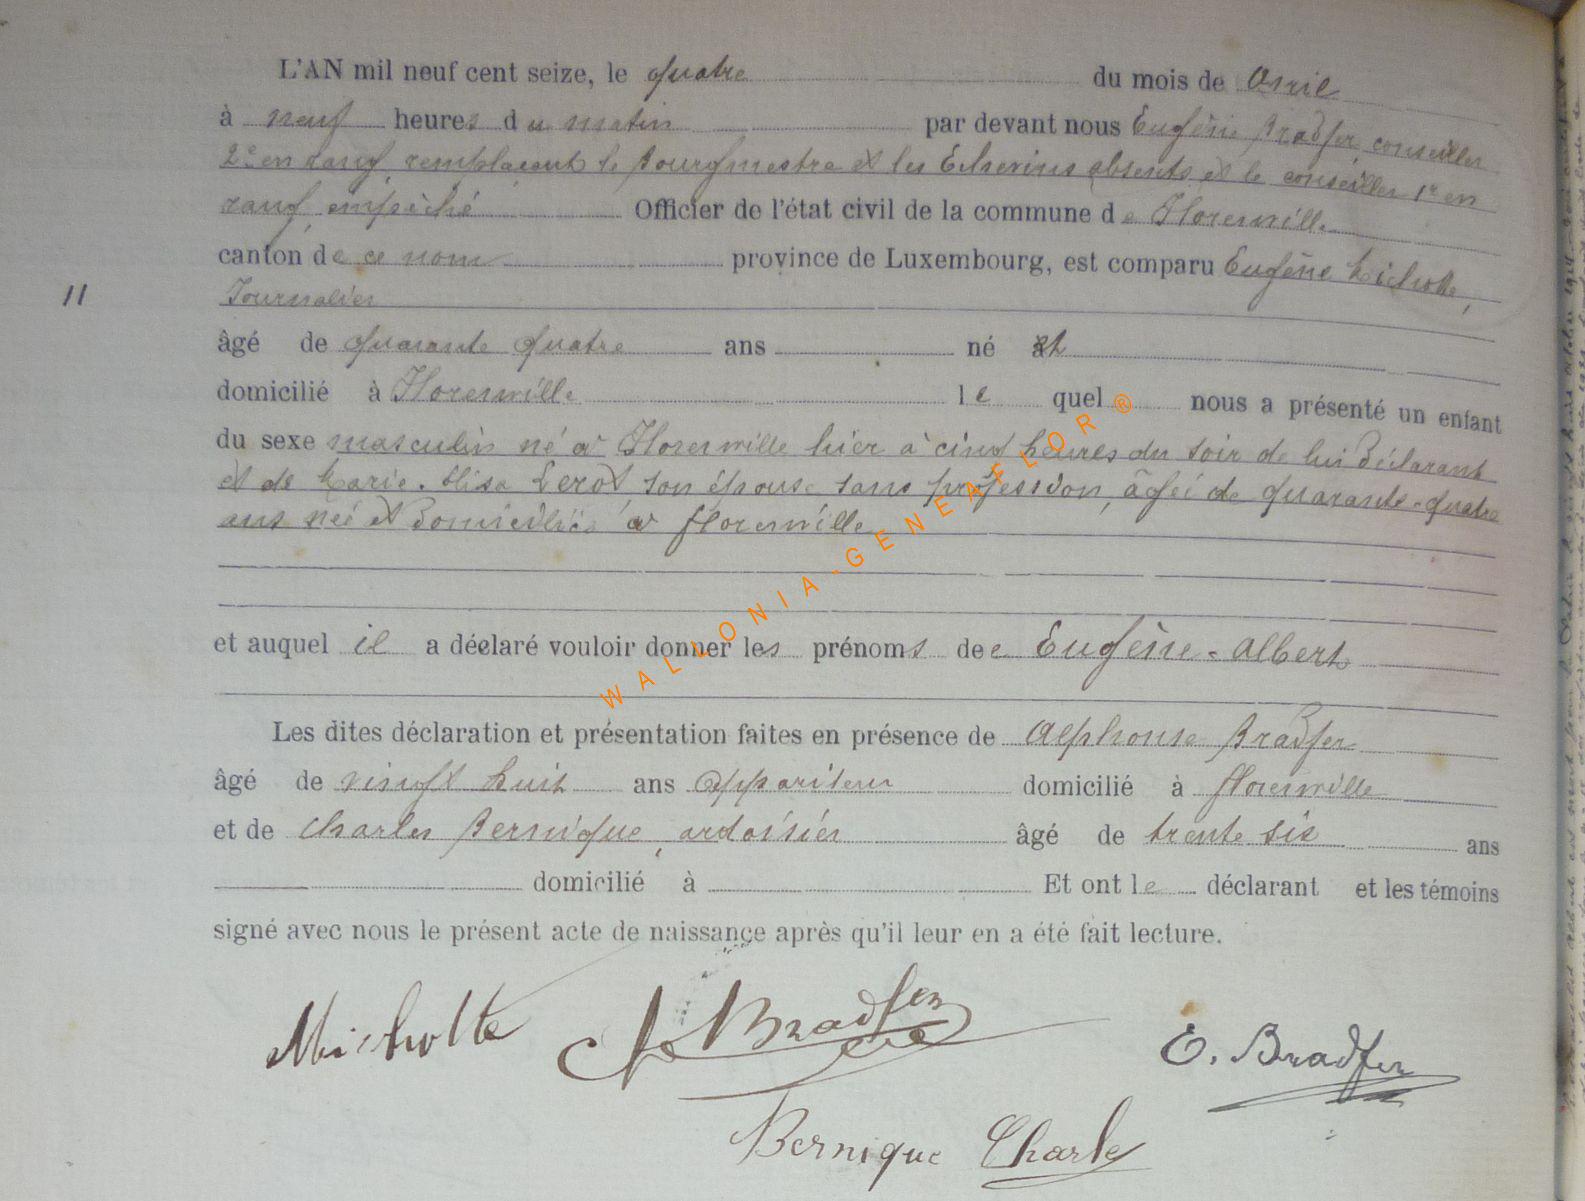 L'AN mil neuf cent seize, le quatre du mois de Avril
à neuf heures du matin par devant nous Eugène Bradfer, conseiller
2e en rang, remplaçant le Bourgmestre et les Echevins absents et le conseiller 1r en
rang empêché Officier de l'état civil de la commune de Florenville
canton de ce nom province de Luxembourg, est comparu Eugène Michotte,
11
Journalier
âgé de quarante quatre ans né et
domicilié à Florenville lequel nous a présenté un enfant
du sexe masculin né à Florenville hier à cinq heures du soir de lui déclarant
et de Marie-Elisa Lerot son épouse sans profession, âgée de quarante-quatre
ans née et domiciliée à Florenville
et auquel il a déclaré vouloir donner les prénoms de Eugène-Albert
Les dites déclaration et présentation faites en présence de Alphonse Bradfer
âgé de vingt huit ans appariteur domicilié à Florenville
et de Charles Bernique, ardoisier âgé de trente six ans
domicilié à Et ont le déclarant et les témoins
signé avec nous le présent acte de naissance après qu'il leur en a été fait lecture.
Michotte A Bradfer E. Bradfer
Bernique Charles
WALLONIA-GENEAFLOR ®